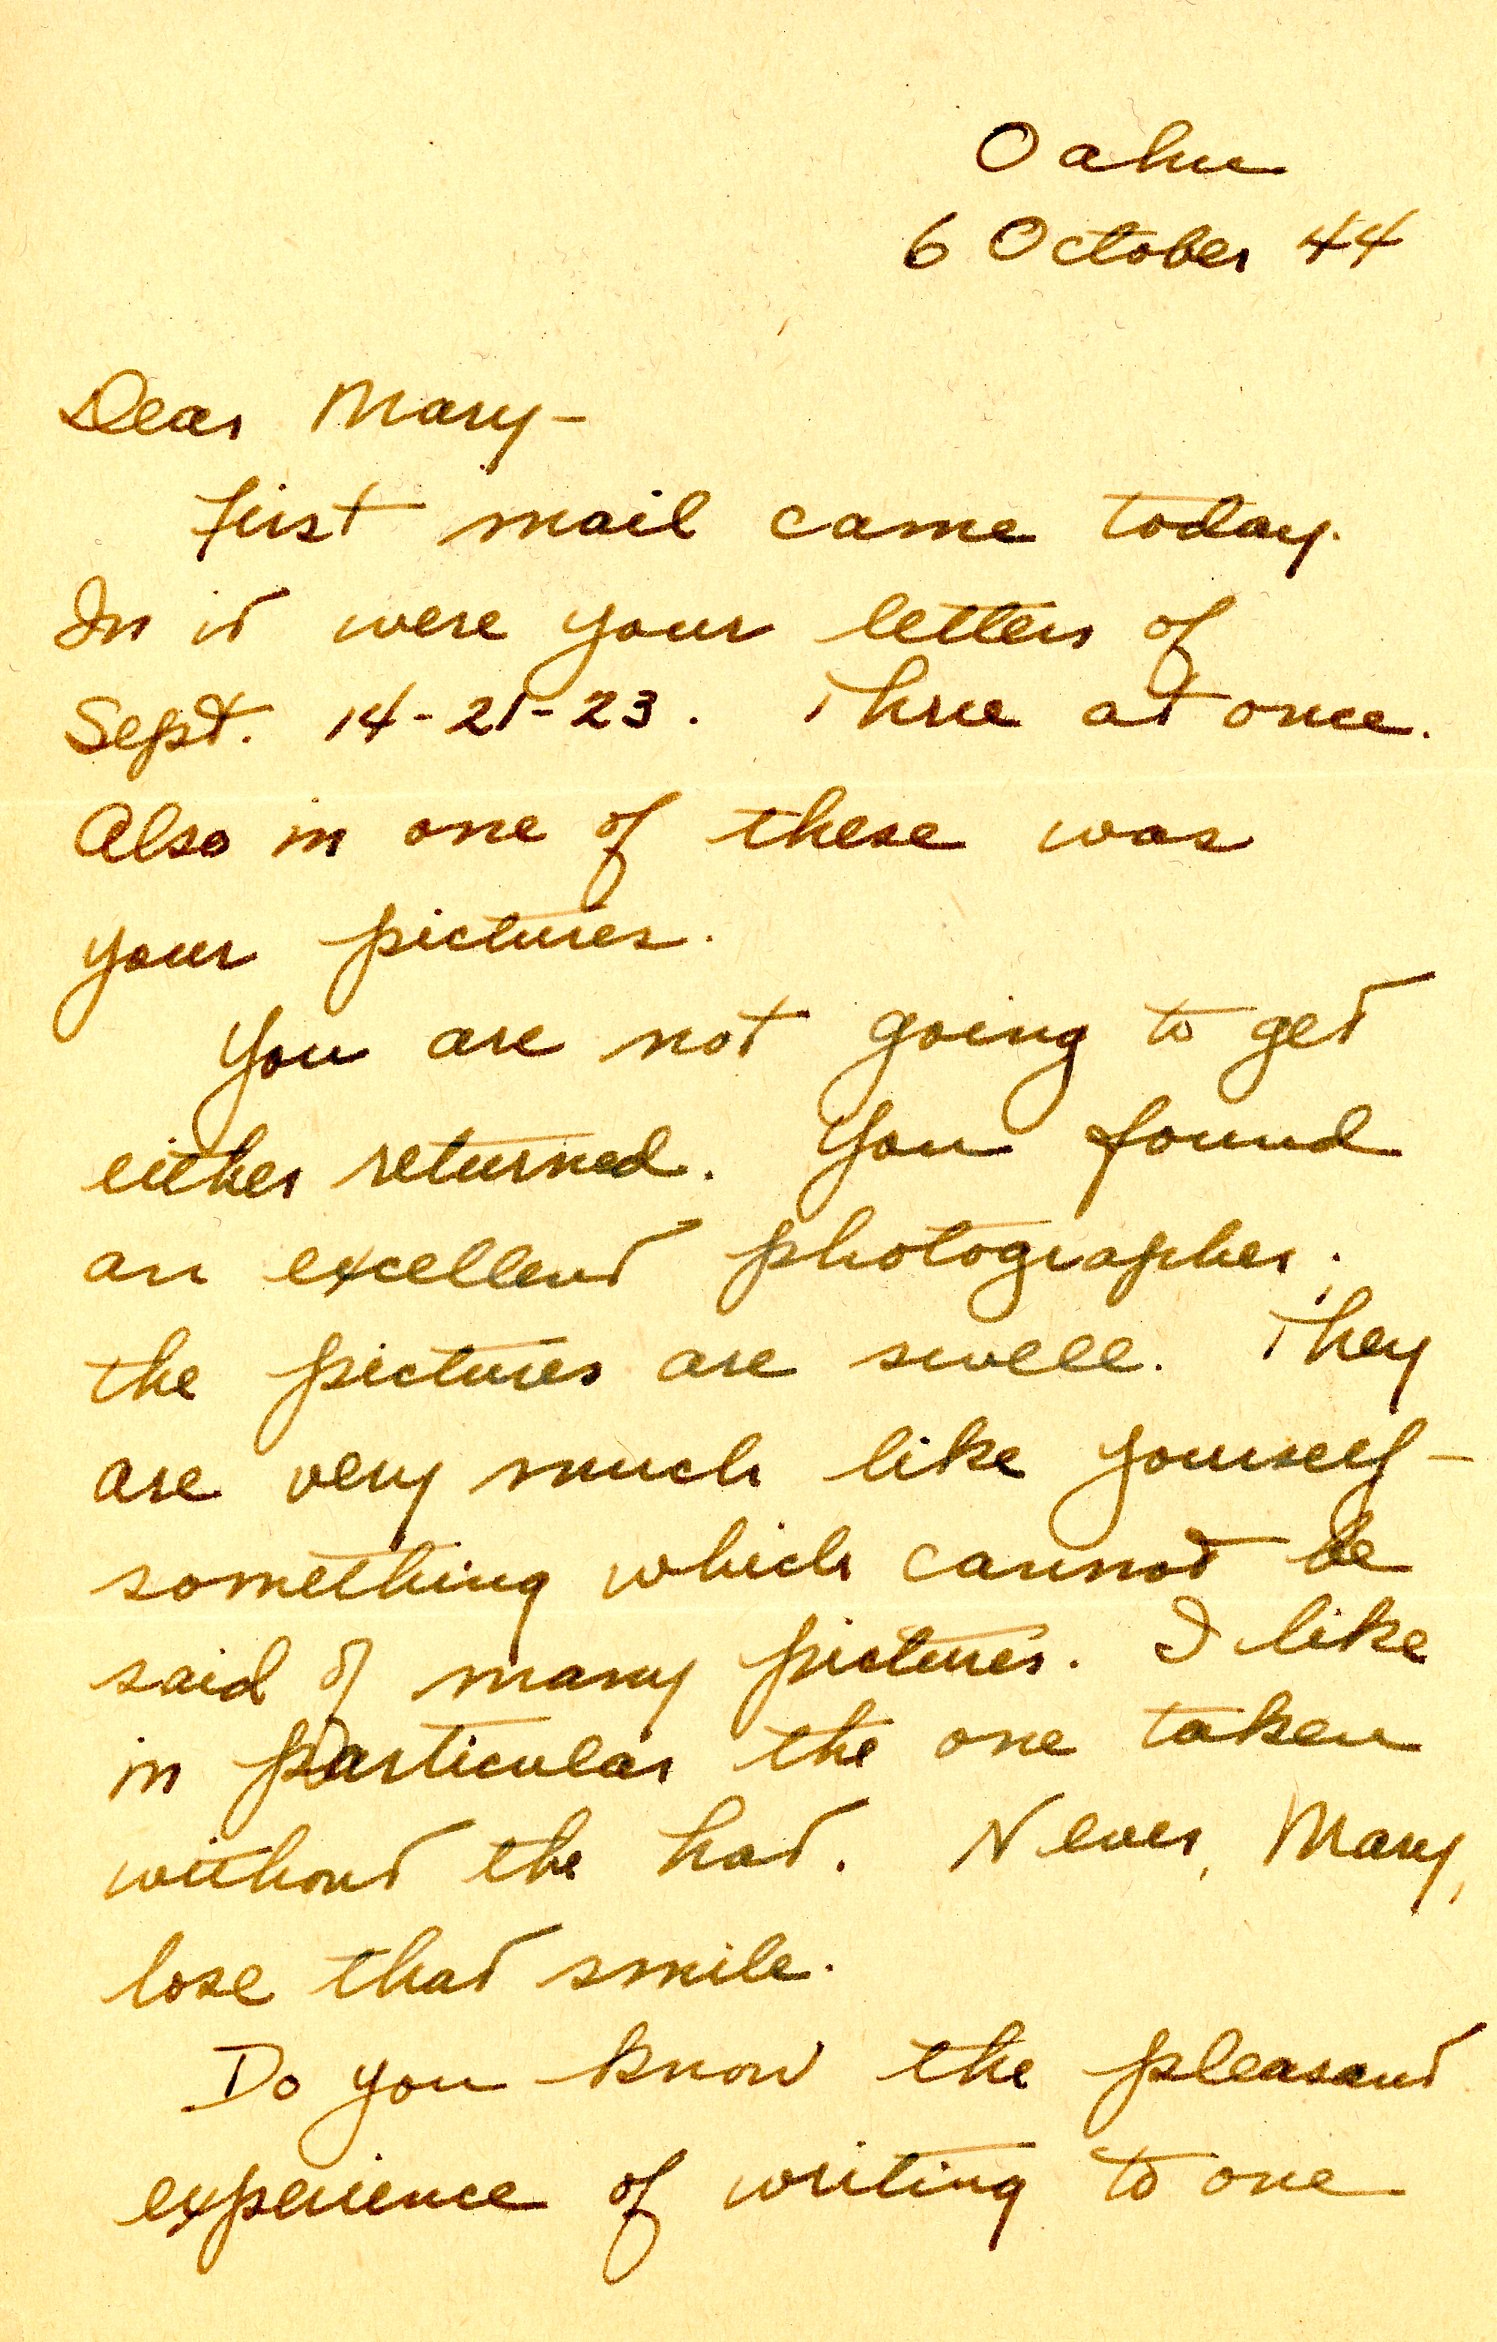 Oahu
6 October 44
Dear Mary-
First mail came today.
In it were your letters of
Sept. 14-21-23. Three at once.
Also in one of these was
your pictures.
You are not going to get
either returned. You found
an excellent photographer.
The pictures are swell. They
are very much like yourself -
something which cannot be
said of many pictures. I like
in particular the one taken
without the hat. Never, Mary,
lose that smile.
Do you know the pleasant
experience of writing to one